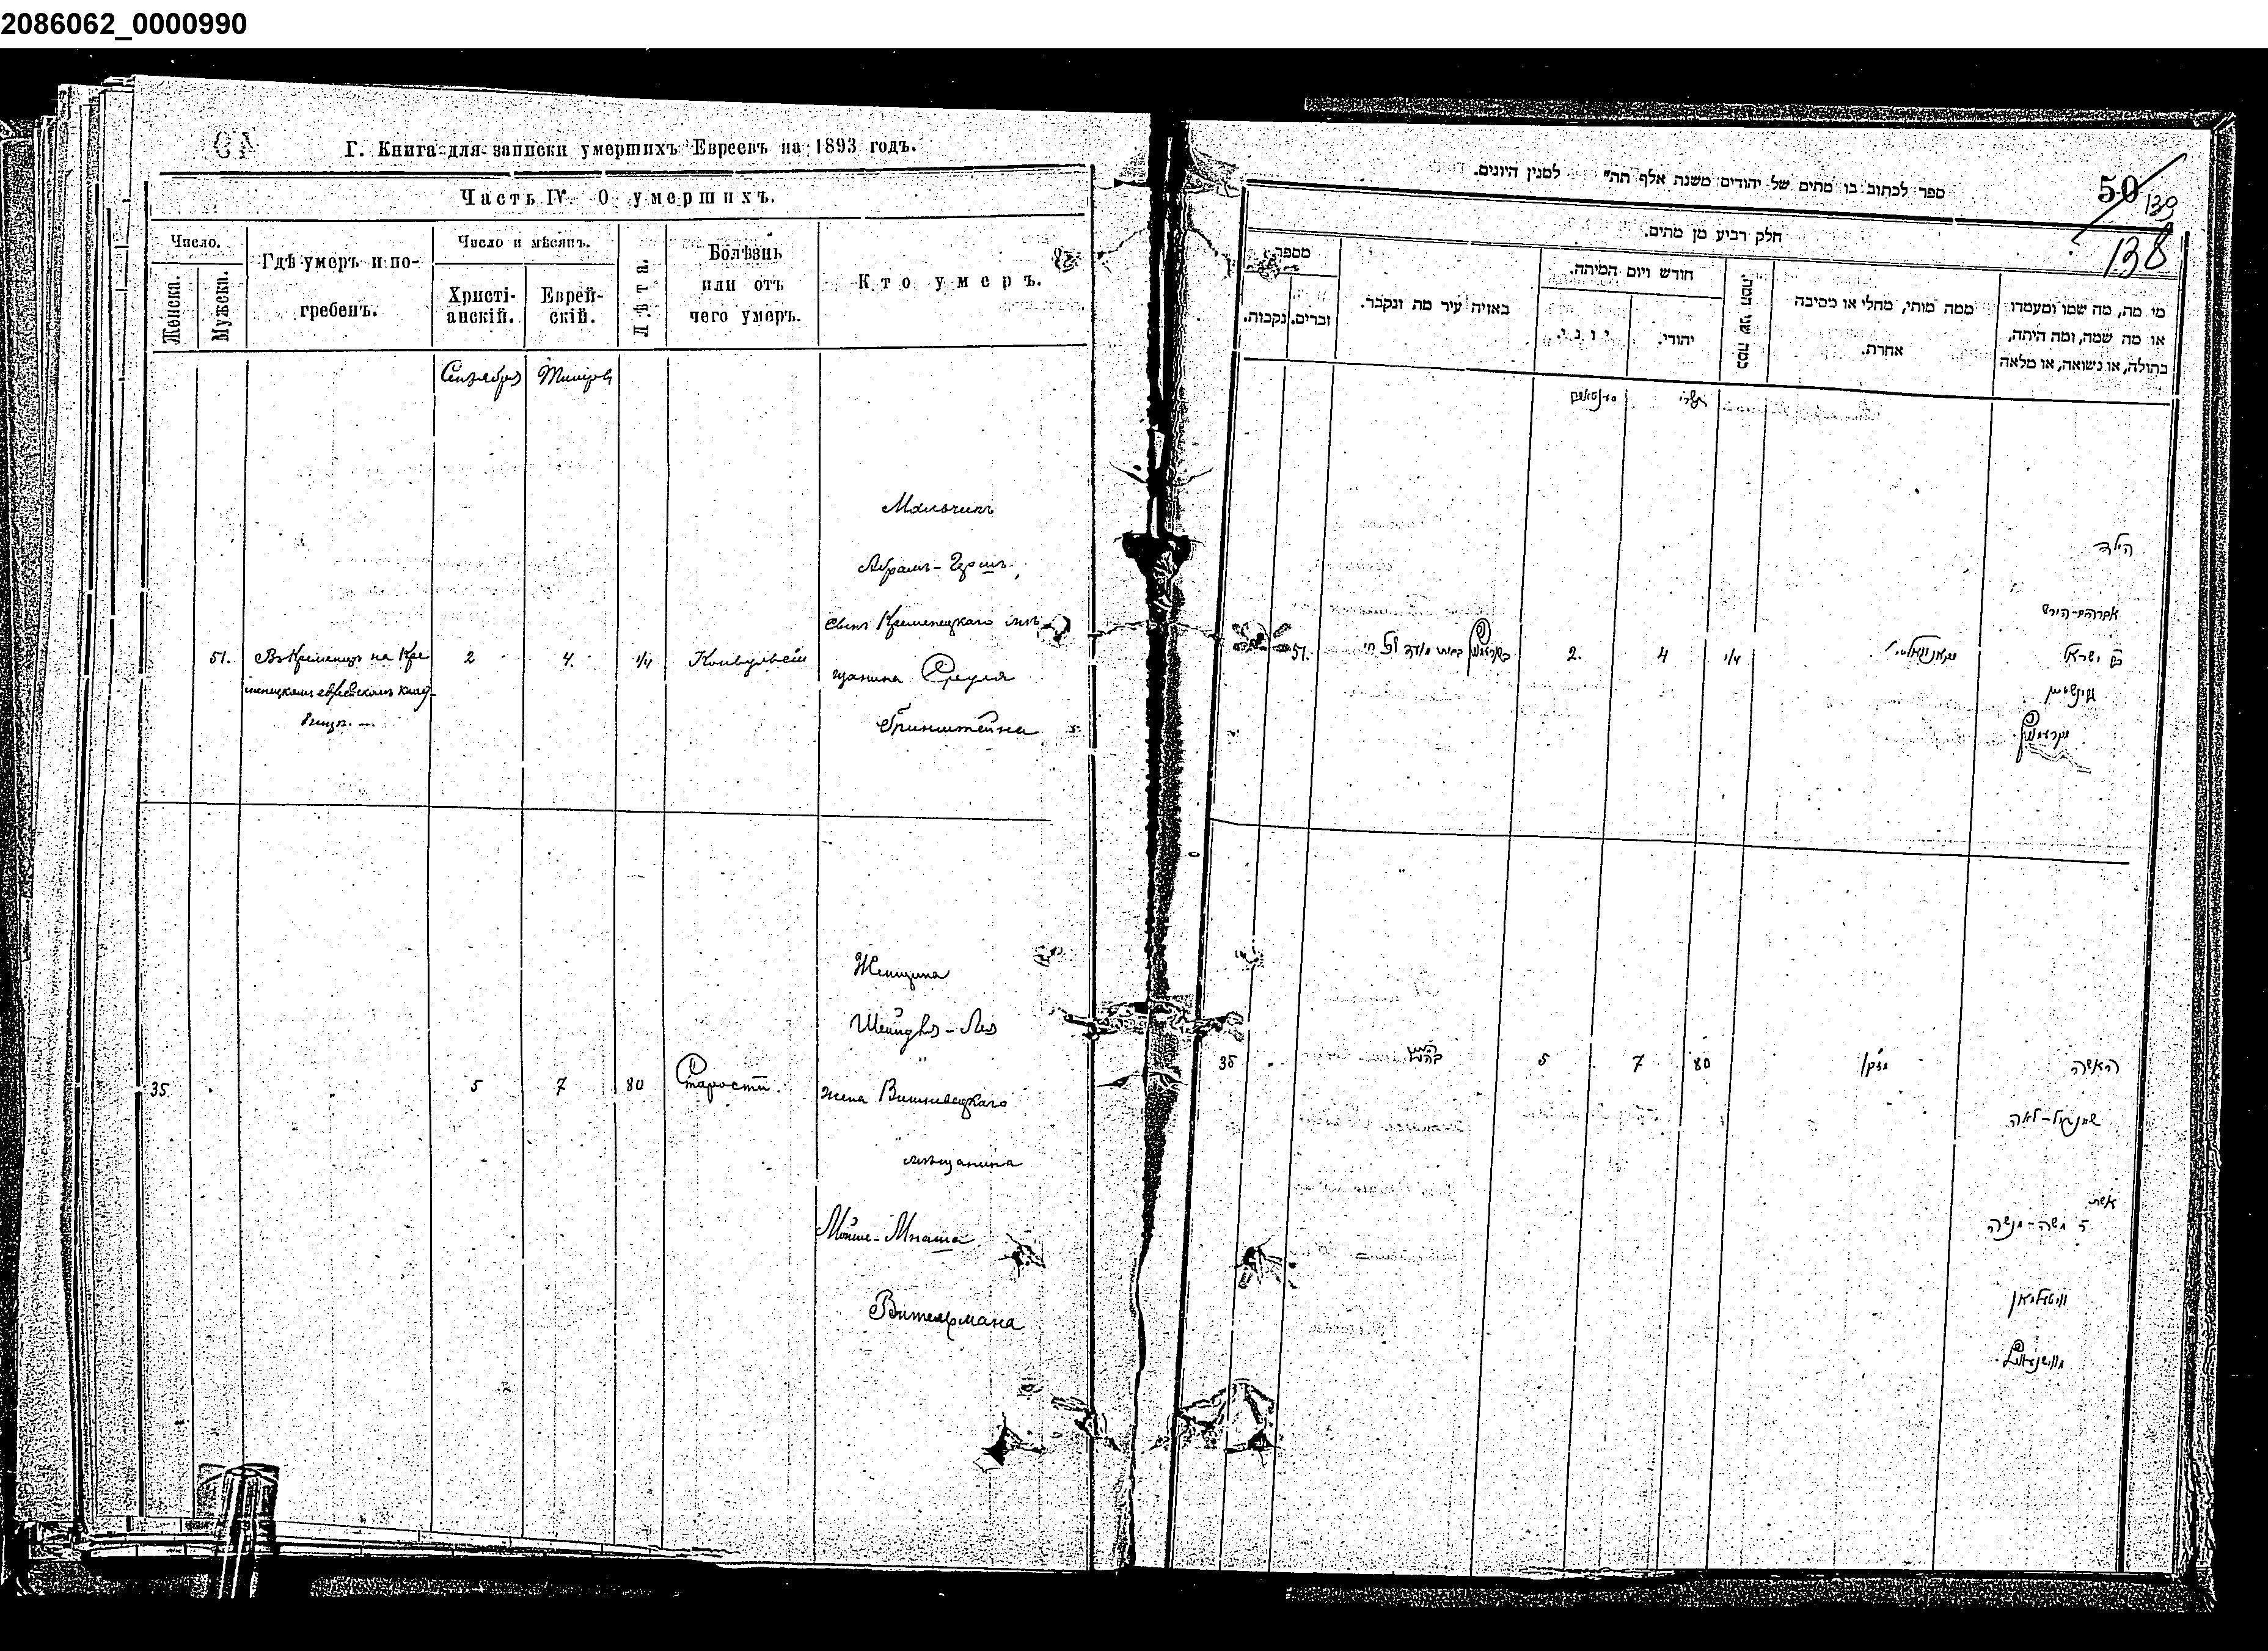 2086062_0000990
Г. Книга для записки умершихъ Евреевъ на 1893 годъ.
Часть IV О умершихъ.
Число.
Женска.
Мужска.
Гдѣ умеръ и по-
гребенъ.
Число и мѣсяцъ.
Христі-
анскій.
Еврей-
скій.
Лѣта.
Болѣзнь
или отъ
чего умеръ.
Кто умеръ.
Сентября
Мальчикъ
Абрамъ-Гершъ,
сынъ Кременецкаго мѣ
щанина Сруля
Гринштейна
51.
Въ Кременцѣ на Кре
менецкомъ еврейскомъ клад-
бищѣ. —
2
4.
1/4
Конвульсіи
Женщина
Шейндля-Лея
жена Вишневецкаго
мѣщанина
Мойше-Мнаша
Вительмана
35
5
7
80
Старости.
ספר לכתוב בו מתים של יהודים משנת אלף תת״ למנין היונים.
50
139
138
חלק רביע מן מתים.
מספר
נקבות.
זכרים.
באיזה עיר מת ונקבר.
חודש ויום המיתה.
יוני.
יהודי.
כמה שני המת.
ממה מותו, מחלי או מסיבה
אחרת.
מי מת, מה שמו ומעמדו
או מה שמה, ומה היתה,
בתולה, או נשואה, או מלאה
תשרי
הילד
אברהם-הירש
בן ישראל
גרינשטיין
51.
2.
4
1/4
35
5
7
80
מזקן
האשה
שיינדיל-לאה
אשת
ר משה-מנשה
וויטעלמאן